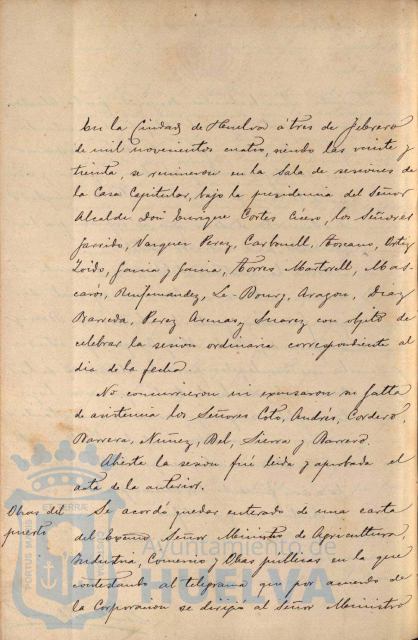 En la Ciudad de Huelva á tres de Febrero
de mil novecientos cuatro, siendo las veinte y
treinta, se reunieron en la Sala de sesiones de
la Casa Capitular, bajo la presidencia del Señor
Alcalde Don Enrique Cortes Cicero, los Señores
Garrido, Vazquez Perez, Carbonell, Toscano, Ortiz
Toido, Garcia y Garcia, Torres Martorell, Mas-
caros, Ruifernandez, Le-Bourg, Aragon, Diaz
Barreda, Perez Arenas y Suarez con objeto de
celebrar la sesion ordinaria correspondiente al
dia de la fecha.
No concurrieron ni excusaron su falta
de asistencia los Señores Coto, Andrés, Cordero,
Barrera, Nuñez, Bel, Sierra y Barrero.
Abierta la sesion fué leida y aprobada el
acta de la anterior.
Obras del
puerto
Se acordó quedar enterado de una carta
del Excmo. Señor Ministro de Agricultura,
Industria, Comercio y Obas publicas en la que
contestando al telegrama que por acuerdo de
la Corporacion se dirigio al Señor Ministro
PORTUS MARIS ET TERRAE
Ayuntamiento de
HUELVA